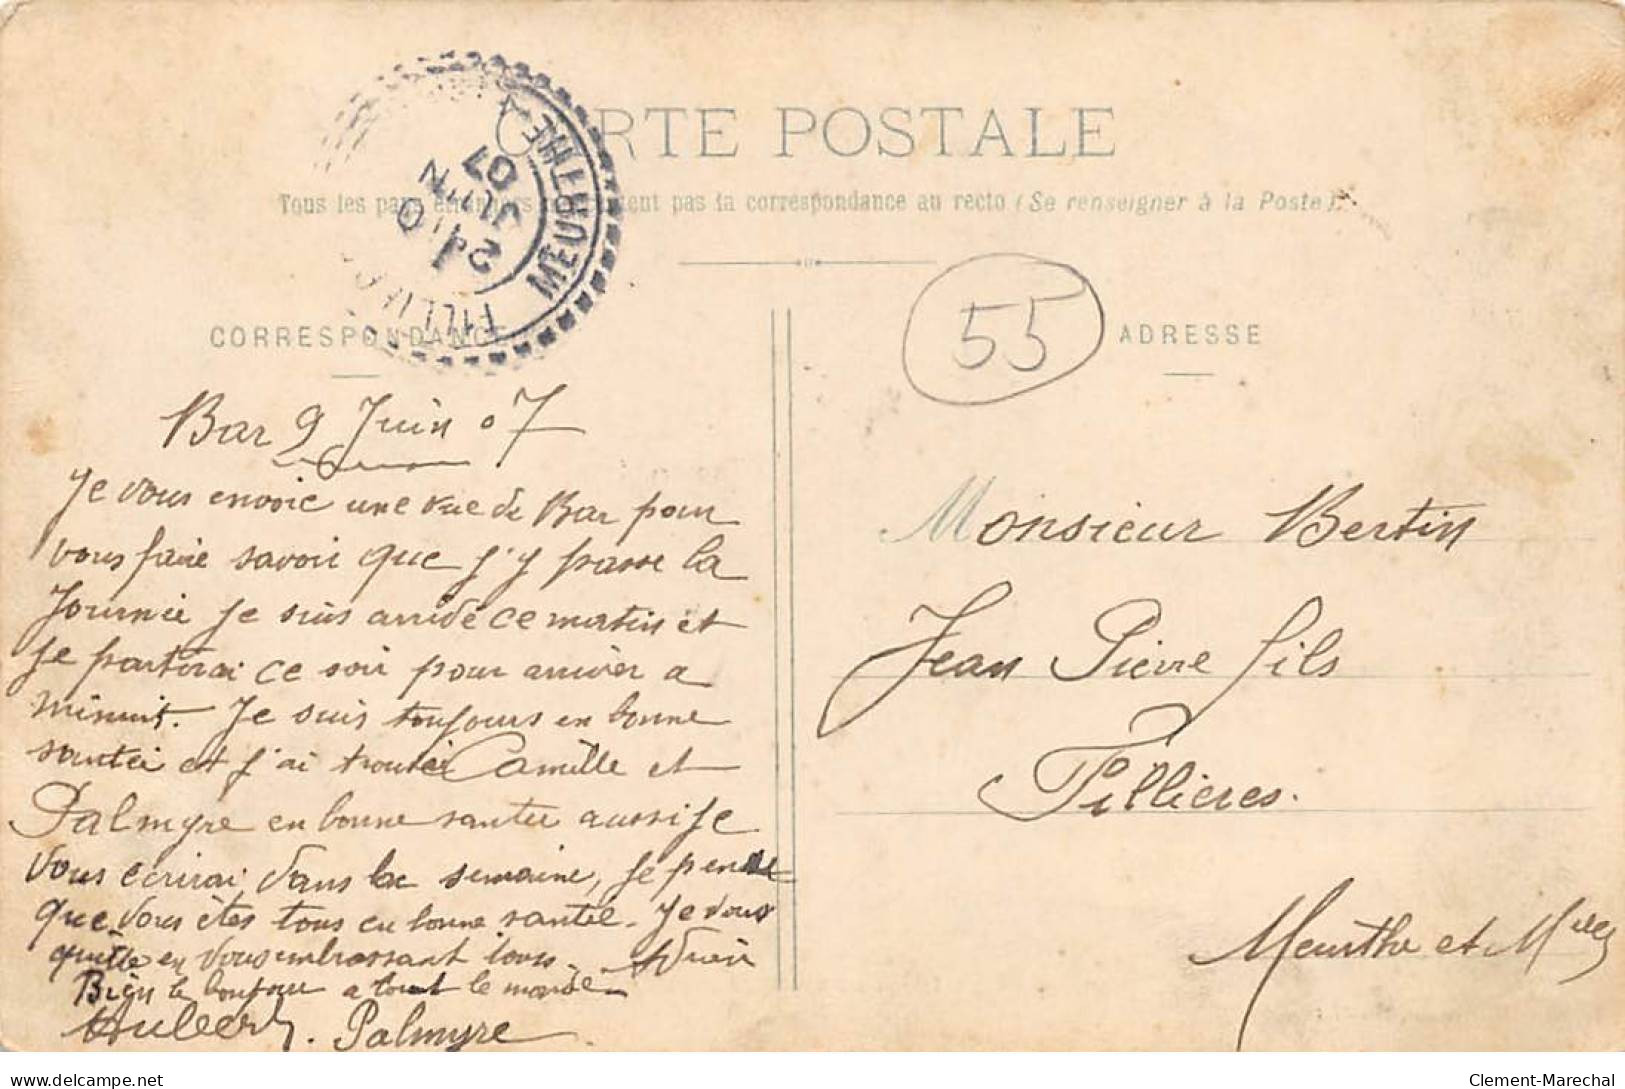 CARTE POSTALE
Tous les pays étrangers n'acceptent pas la correspondance au recto (Se renseigner à la Poste).
MEURTHE
FILLI
JUIN
07
55
CORRESPONDANCE
ADRESSE
Bar 9 Juin 07
Je vous envoie une vue de Bar pour
vous faire savoir que j'y passe la
Journée je suis arrivé ce matin et
je partirai ce soir pour arriver a
minuit. Je suis toujours en bonne
santéé et j'ai trouvé Camille et
Palmyre en bonne santée aussi je
vous écrirai dans la semaine, je pense
que vous êtes tous en bonne santée. Je vous
quitte en vous embrassant tous.
Bien le bonjour a tout le monde
Hubert. Palmyre
Monsieur Bertin
Jean Pierre fils
Fillieres.
Meurthe et Mlle
Clement-Marechal